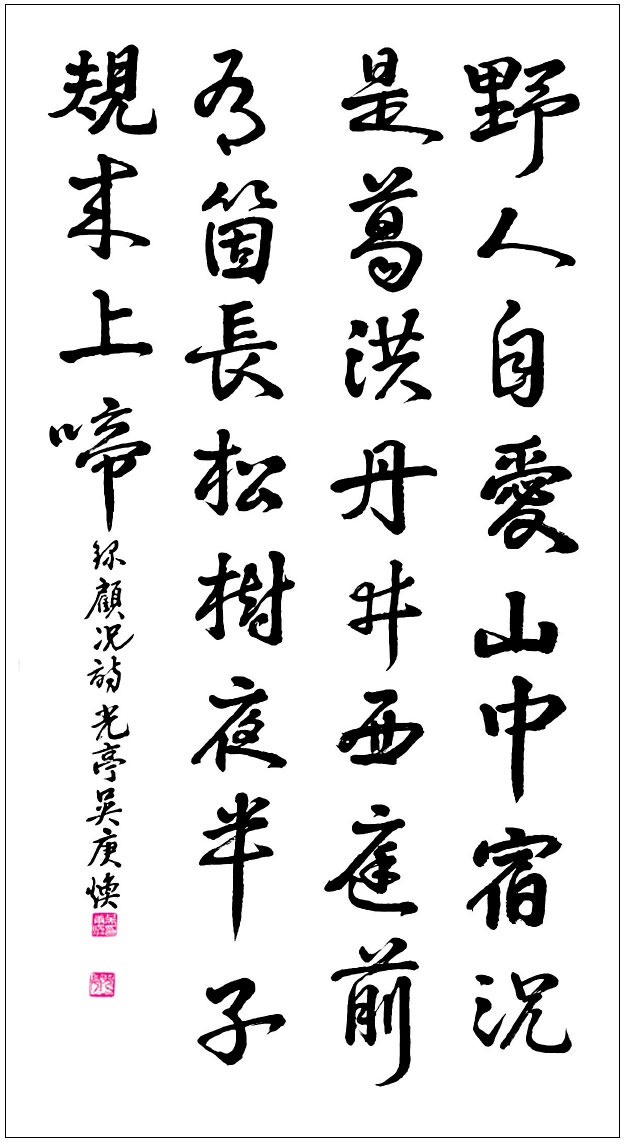 野人自愛山中宿況
是葛洪丹井西庭前
有箇長松樹夜半子
規来上啼
録顧况詩光亭吴庚焕